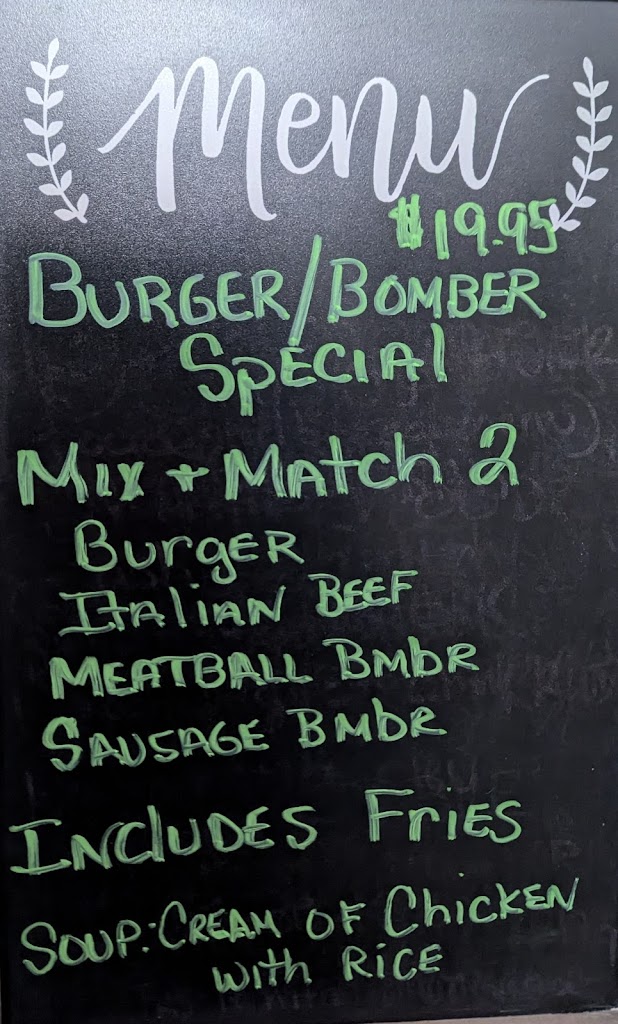 Menu
$19.95
BURGER/BOMBER
SPECIAl
MIX + MATCh 2
BurgER
ItAlIAN BEEF
MEATBALL BMbR
SAUSAGE BMbR
INCludES FriES
SOUP: CREAM OF ChickEN
with RiCE